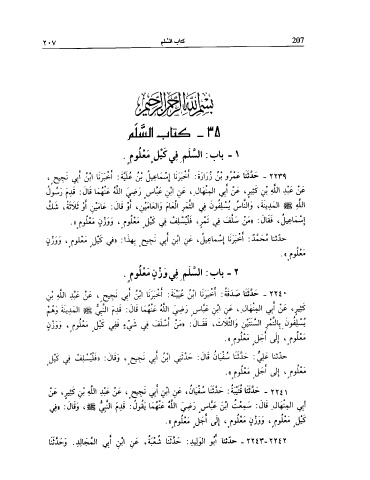 ٢٠٧ كتاب السَّلم 207
بسم الله الرحمن الرحيم
٣٥ - كتاب السَّلَم
١ - باب: السَّلَمِ فِي كَيْلٍ مَعْلُومٍ.
٢٢٣٩ - حَدَّثَنَا عَمْرُو بْنُ زُرَارَةَ: أَخْبَرَنَا إِسْمَاعِيلُ بْنُ عُلَيَّةَ: أَخْبَرَنَا ابْنُ أَبِي نَجِيحٍ،
عَنْ عَبْدِ اللَّهِ بْنِ كَثِيرٍ، عَنْ أَبِي المِنْهَالِ، عَنِ ابْنِ عَبَّاسٍ رَضِيَ اللَّهُ عَنْهُمَا قَالَ: قَدِمَ رَسُولُ
اللَّهِ ﷺ المَدِينَةَ، وَالنَّاسُ يُسْلِفُونَ فِي الثَّمَرِ العَامَ وَالعَامَيْنِ، أَوْ قَالَ: عَامَيْنِ أَوْ ثَلَاثَةً، شَكَّ
إِسْمَاعِيلُ، فَقَالَ: «مَنْ سَلَّفَ فِي تَمْرٍ، فَلْيُسْلِفْ فِي كَيْلٍ مَعْلُومٍ، وَوَزْنٍ مَعْلُومٍ».
حدثنا مُحَمَّدٌ: أَخْبَرَنَا إِسْمَاعِيلُ، عَنِ ابْنِ أَبِي نَجِيحٍ بِهذا: «فِي كَيْلٍ مَعْلُومٍ، وَوَزْنٍ
مَعْلُومٍ».
٢ - باب: السَّلَمِ فِي وَزْنٍ مَعْلُومٍ.
٢٢٤٠ - حَدَّثَنَا صَدَقَةُ: أَخْبَرَنَا ابْنُ عُيَيْنَةَ: أَخْبَرَنَا ابْنُ أَبِي نَجِيحٍ، عَنْ عَبْدِ اللَّهِ بْنِ
كَثِيرٍ، عَنْ أَبِي المِنْهَالِ، عَنِ ابْنِ عَبَّاسٍ رَضِيَ اللَّهُ عَنْهُمَا قَالَ: قَدِمَ النَّبِيُّ ﷺ المَدِينَةَ وَهُمْ
يُسْلِفُونَ بِالتَّمْرِ السَّنَتَيْنِ وَالثَّلَاثَ، فَقَالَ: «مَنْ أَسْلَفَ فِي شَيْءٍ فَفِي كَيْلٍ مَعْلُومٍ، وَوَزْنٍ
مَعْلُومٍ، إِلَى أَجَلٍ مَعْلُومٍ».
حدثنا عَلِيٌّ: حَدَّثَنَا سُفْيَانُ قَالَ: حَدَّثَنِي ابْنُ أَبِي نَجِيحٍ، وَقَالَ: «فَلْيُسْلِفْ فِي كَيْلٍ
مَعْلُومٍ، إِلَى أَجَلٍ مَعْلُومٍ».
٢٢٤١ - حَدَّثَنَا قُتَيْبَةُ: حَدَّثَنَا سُفْيَانُ، عَنِ ابْنِ أَبِي نَجِيحٍ، عَنْ عَبْدِ اللَّهِ بْنِ كَثِيرٍ، عَنْ
أَبِي المِنْهَالِ قَالَ: سَمِعْتُ ابْنَ عَبَّاسٍ رَضِيَ اللَّهُ عَنْهُمَا يَقُولُ: قَدِمَ النَّبِيُّ ﷺ، وَقَالَ: «فِي
كَيْلٍ مَعْلُومٍ، وَوَزْنٍ مَعْلُومٍ، إِلَى أَجَلٍ مَعْلُومٍ».
٢٢٤٢-٢٢٤٣ - حدثنا أَبُو الوَلِيدِ: حَدَّثَنَا شُعْبَةُ، عَنِ ابْنِ أَبِي المُجَالِدِ. وَحَدَّثَنَا